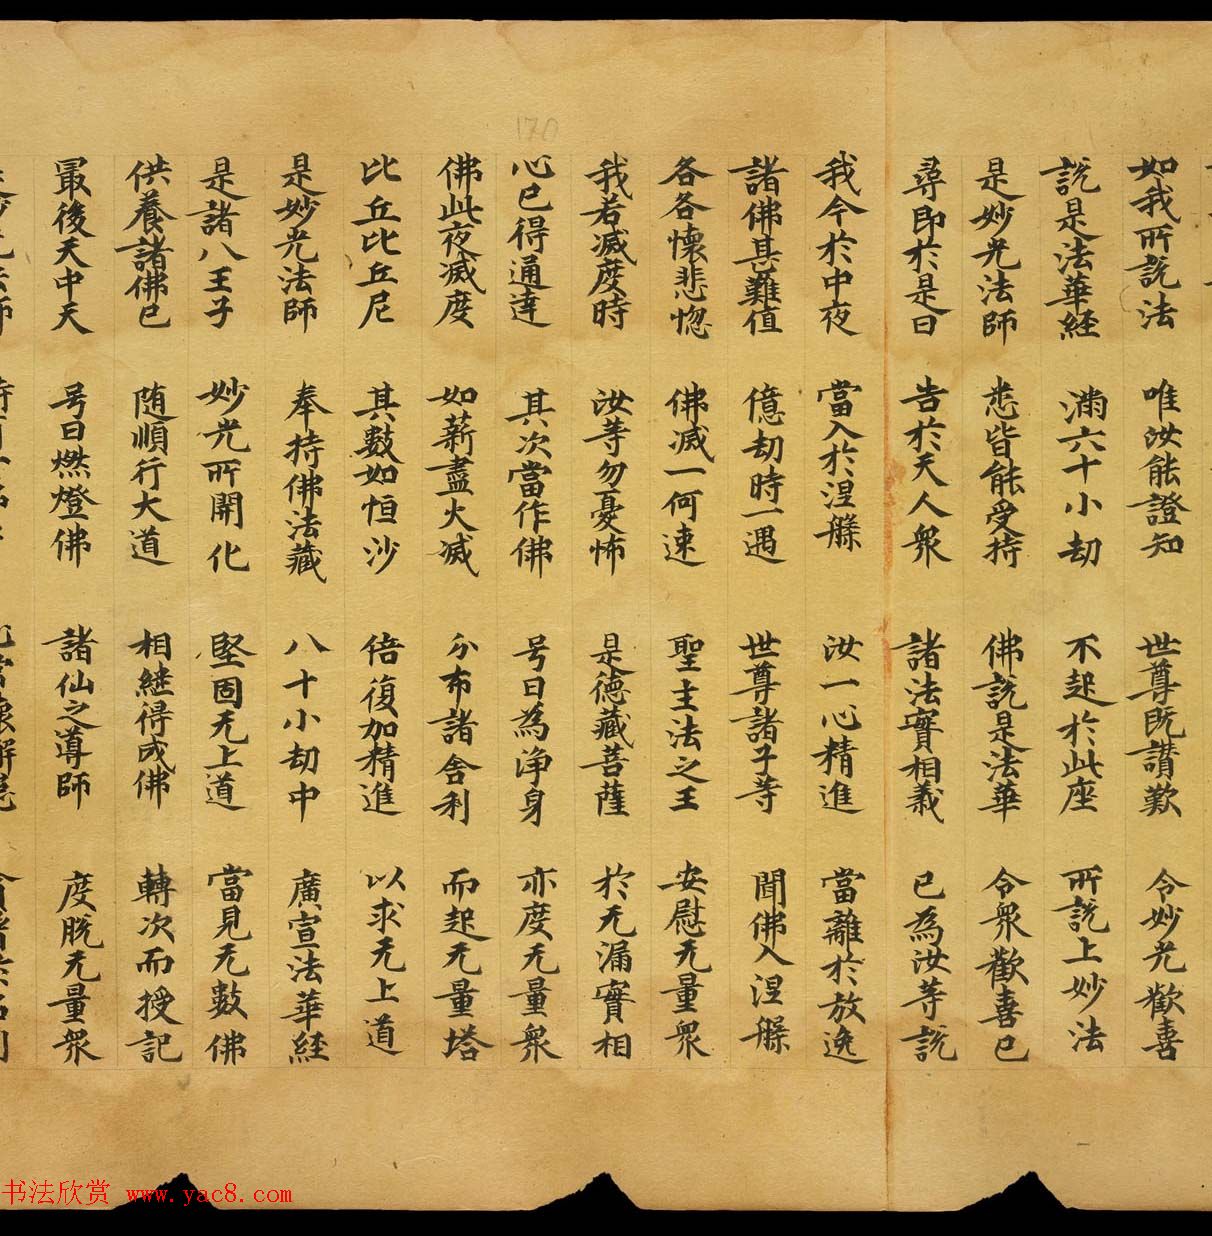 如我所説法 唯汝能證知 世尊既讃歎 令妙光歡喜
説是法華経 满六十小劫 不起於此座 所説上妙法
是妙光法師 悉皆能受持 佛説是法華 令衆歡喜已
尋即於是日 告於天人衆 諸法實相義 已為汝等説
我今於中夜 當入於涅槃 汝一心精進 當離於放逸
諸佛甚難值 億劫時一遇 世尊諸子等 聞佛入涅槃
各各懷悲惚 佛滅一何速 聖主法之王 安慰无量衆
我若滅度時 汝等勿憂怖 是德藏菩薩 於无漏實相
心已得通達 其次當作佛 号曰為淨身 亦度无量衆
佛此夜滅度 如薪盡火滅 分布諸舍利 而起无量塔
比丘比丘尼 其數如恒沙 倍復加精進 以求无上道
是妙光法師 奉持佛法藏 八十小劫中 廣宣法華経
是諸八王子 妙光所開化 堅固无上道 當見无數佛
供養諸佛已 随順行大道 相継得成佛 轉次而授記
最後天中天 号曰燃燈佛 諸仙之導師 度脱无量衆
170
书法欣赏 www.yac8.com